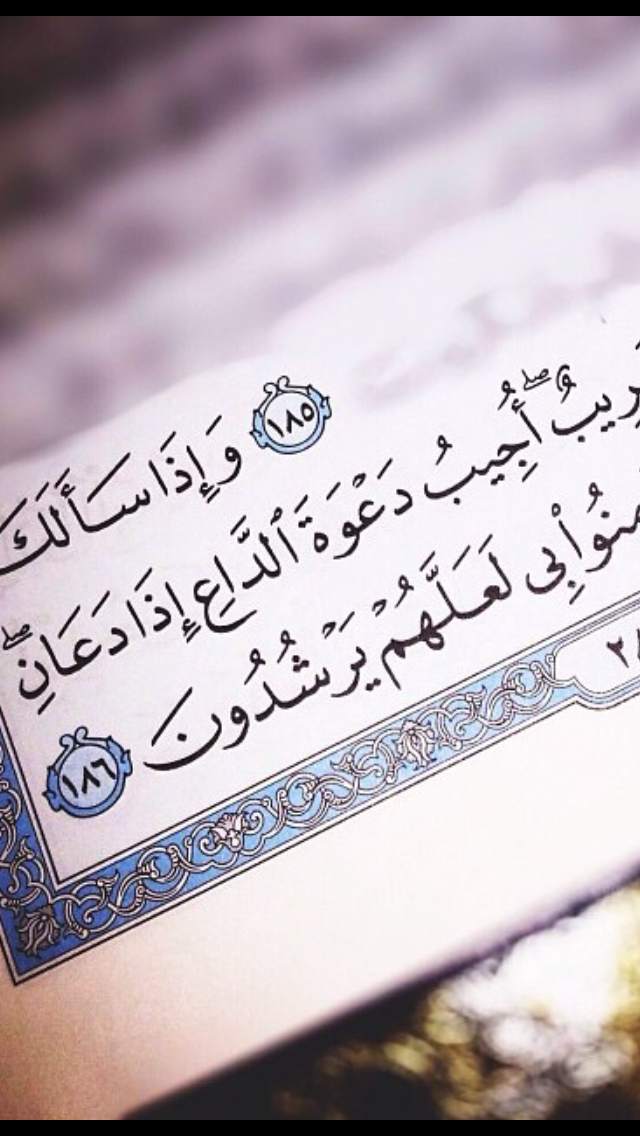 ١٨٥ وَإِذَا سَأَلَكَ
رِيبٌۖ أُجِيبُ دَعْوَةَ ٱلدَّاعِ إِذَا دَعَانِۖ
مِنُوا۟ بِى لَعَلَّهُمْ يَرْشُدُونَ ١٨٦